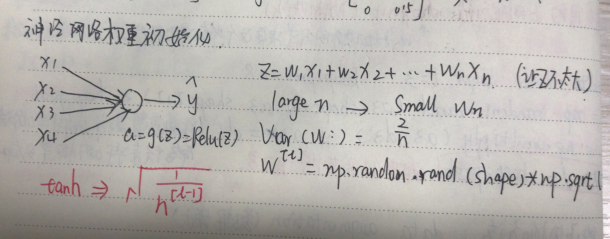 0 0.5]
神经网络权重初始化.
x1
x2
x3
x4
ŷ
a=g(z)=Relu(z)
tanh ⇒ √(1/n^[l-1])
Z=W1X1+W2X2+…+WnXn (让Z不太大)
large n → Small Wn
Var(W:)= 2/n
W^[l]=np.random.rand(shape)*np.sqrt(